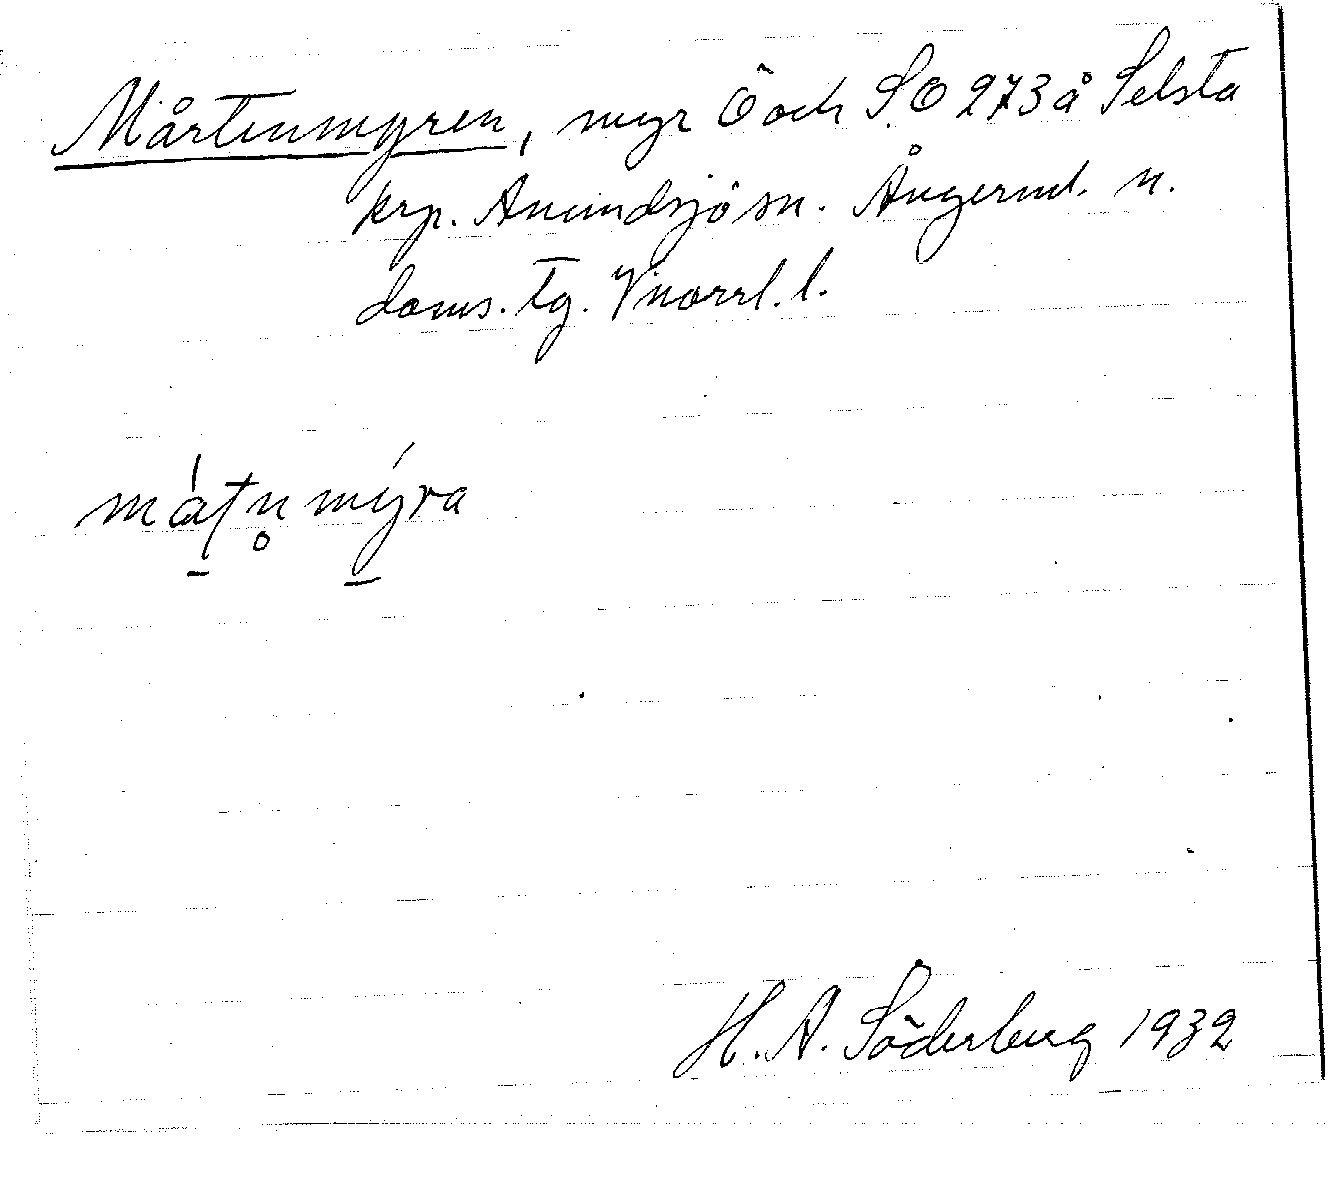 Mårtenmyren, myr Ö och S.O 273 å Selsta
krp. Anundsjö sn. Ångerml. n.
doms. tg. Vnorrl. l.
mátn̥ mýra
H. A. Söderberg 1932